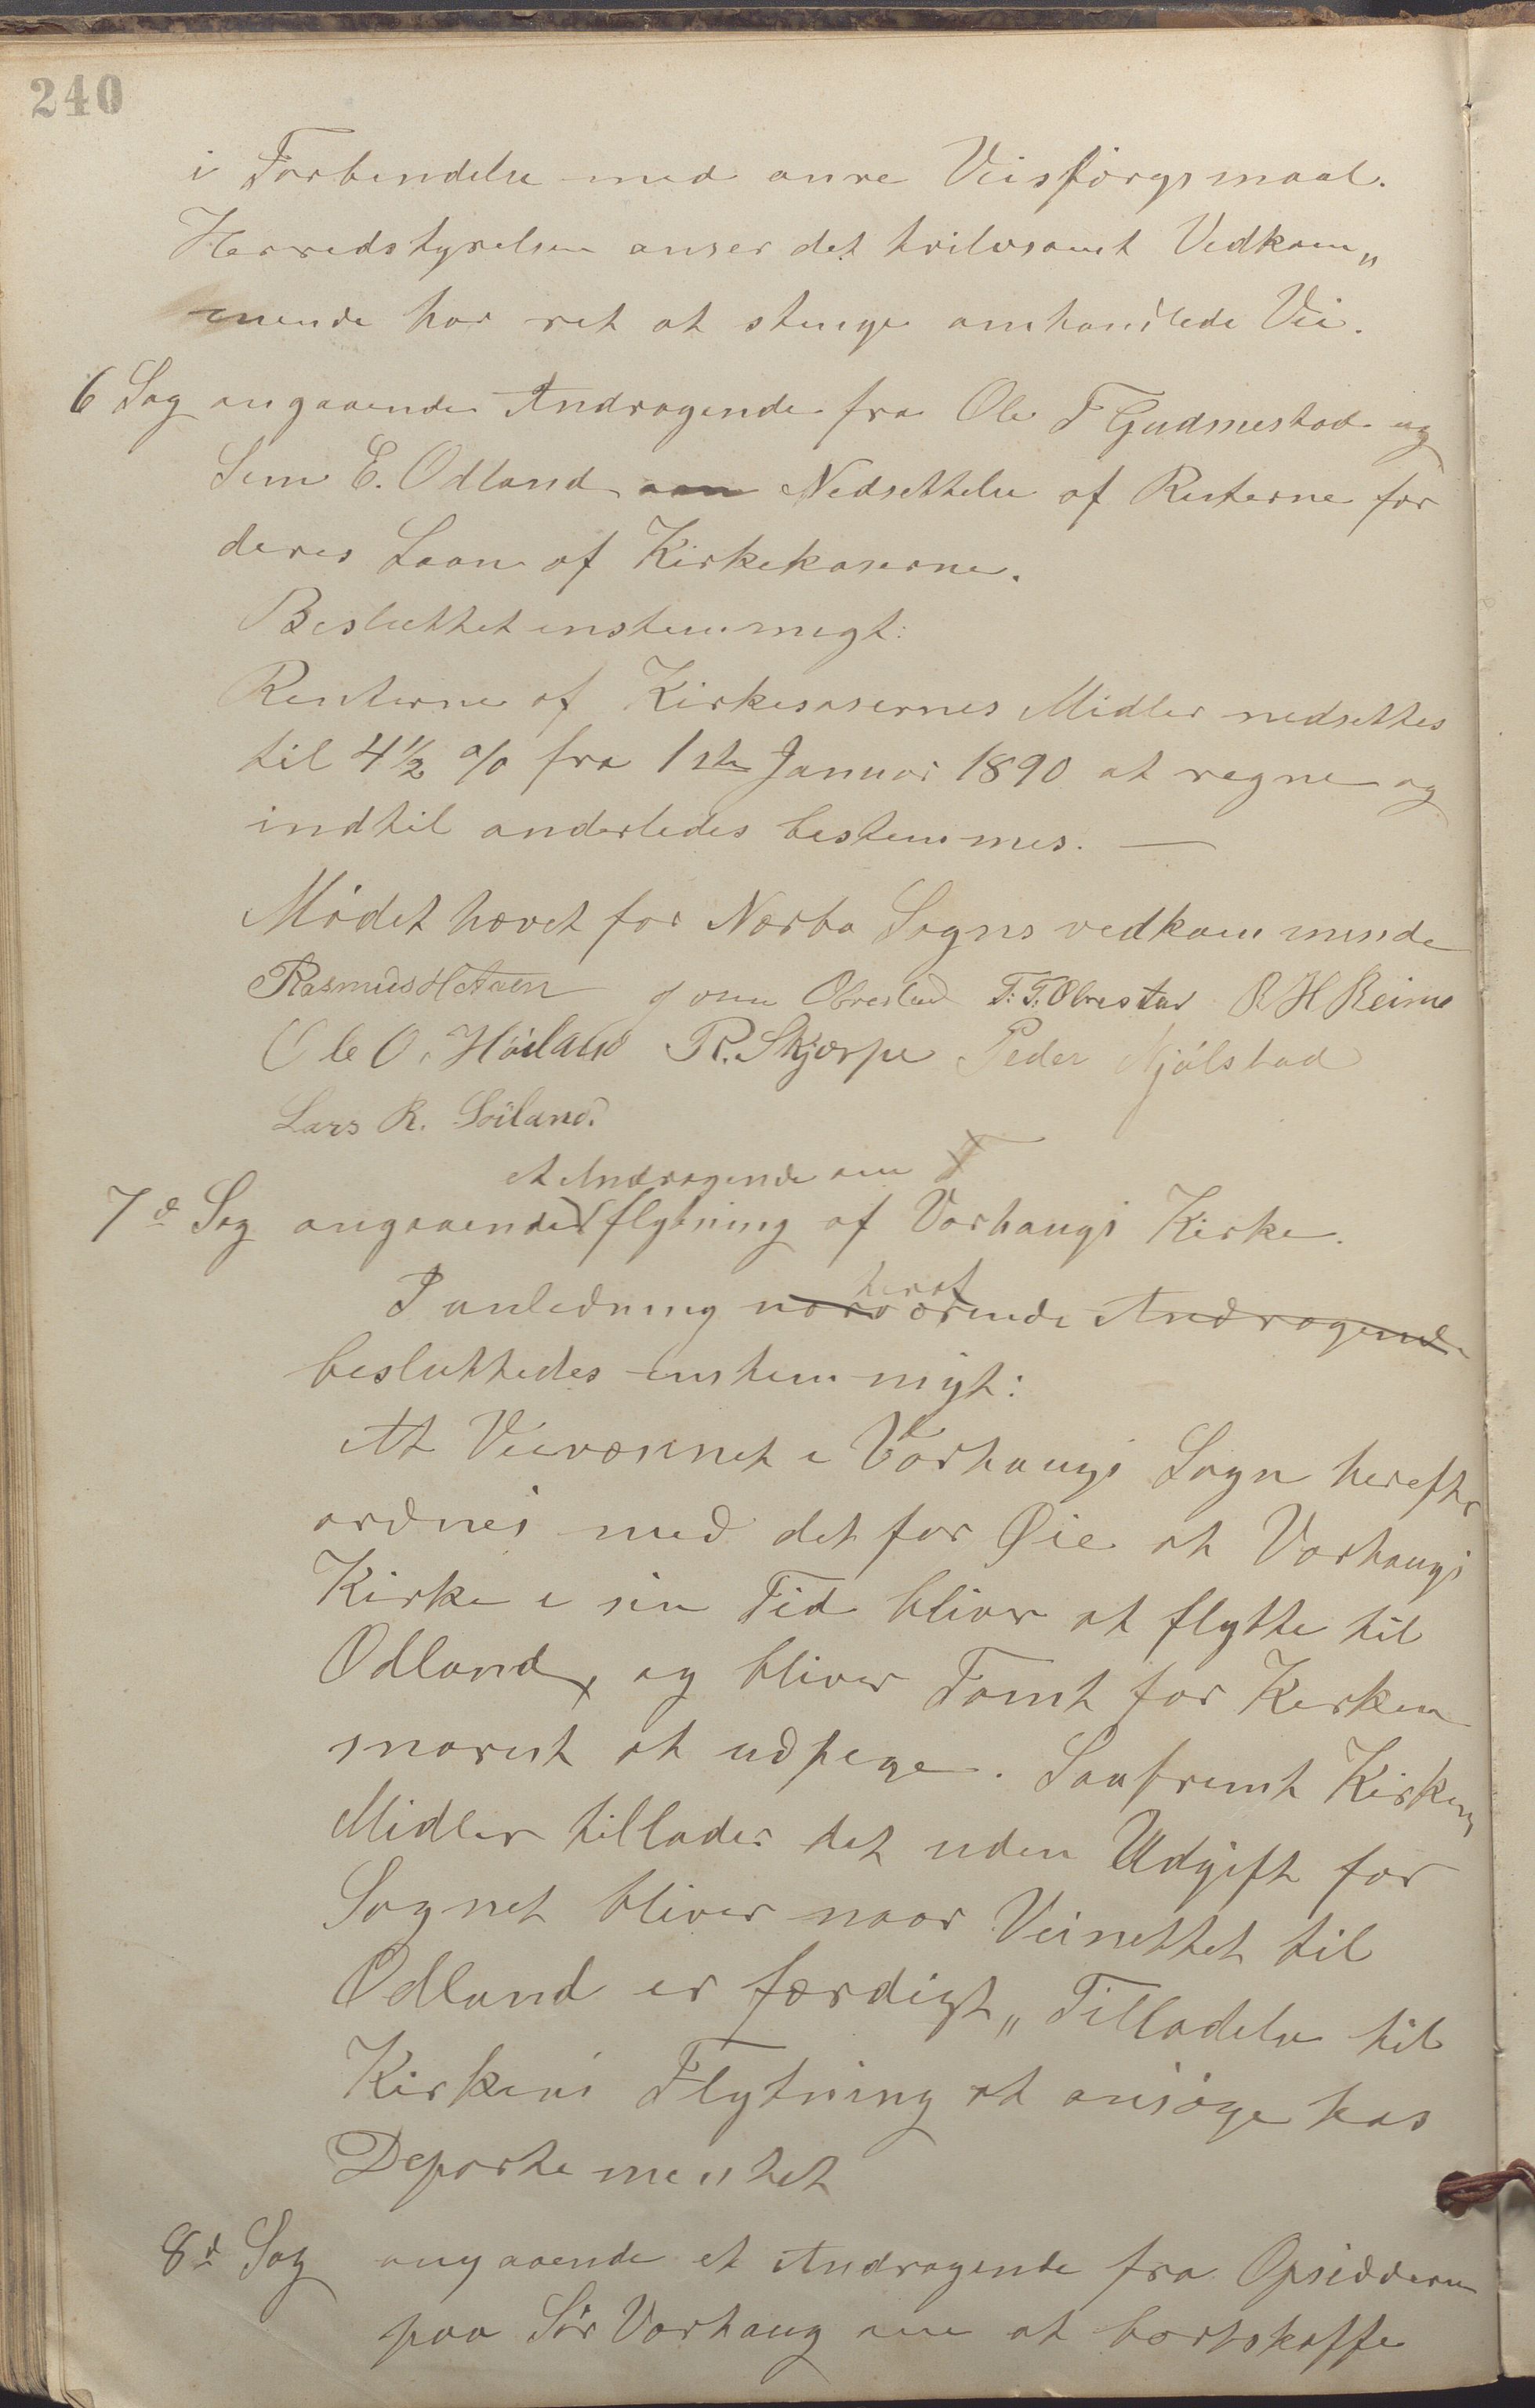 240
i Forbendelse med anre Veisspørgsmaal.
Herredstyrelsen anser det tvilvsomt Vedkom„
mende har ret at stenge omhandlede Vei.
6 Sag angaaende Andragende fra Ole T Gudmestad og
Sem E. Odland om Nedsettelse af Renterne for
deres Laan af Kirkekaserne.
Besluttet enstemmigt:
Renterne af Kirkesasernes Midler nedsettes
til 4½ % fra 1ste Januar 1890 at regne og
indtil anderledes bestemmes. —
Mødet hævet for Nærbø Sogns vedkommende
Rasmus H Aaen Jonn Obrestad T. T. Obrestad R H Reime
Ole O. Høiland R. Skjærpe Peder Njølstad
Lars R. Søiland.
et Andragende om
7de Sag angaaende flytning af Varhougs Kirke.
heraf
I anledning nærværende Andragende
besluttedes enstemmigt:
At Veivæsnet i Varhougs Sogn herefter
ordnes med det for Øie at Varhougs
Kirke i sin Tid bliver at flytte til
Odland, og bliver Tomt for Kirken
snarest at udpege. Saafremt Kirkens
Midler tillader det uden Udgift for
Sognet bliver naar Veinettet til
Odland er færdigt„ Tilladelse til
Kirkens Flytning at ansøge hos
Departementet
8de Sag angaaende et Andragende fra Opsidderne
paa Sør Varhaug om at bortskaffe